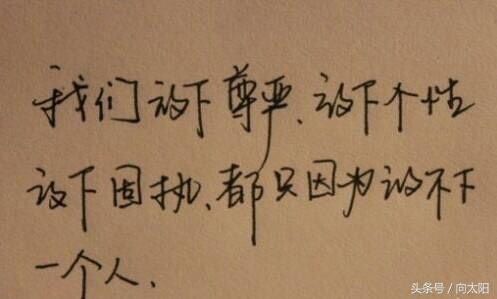 我们放下尊严、放下个性
放下固执、都只因为放不下
一个人.
头条号／向太阳